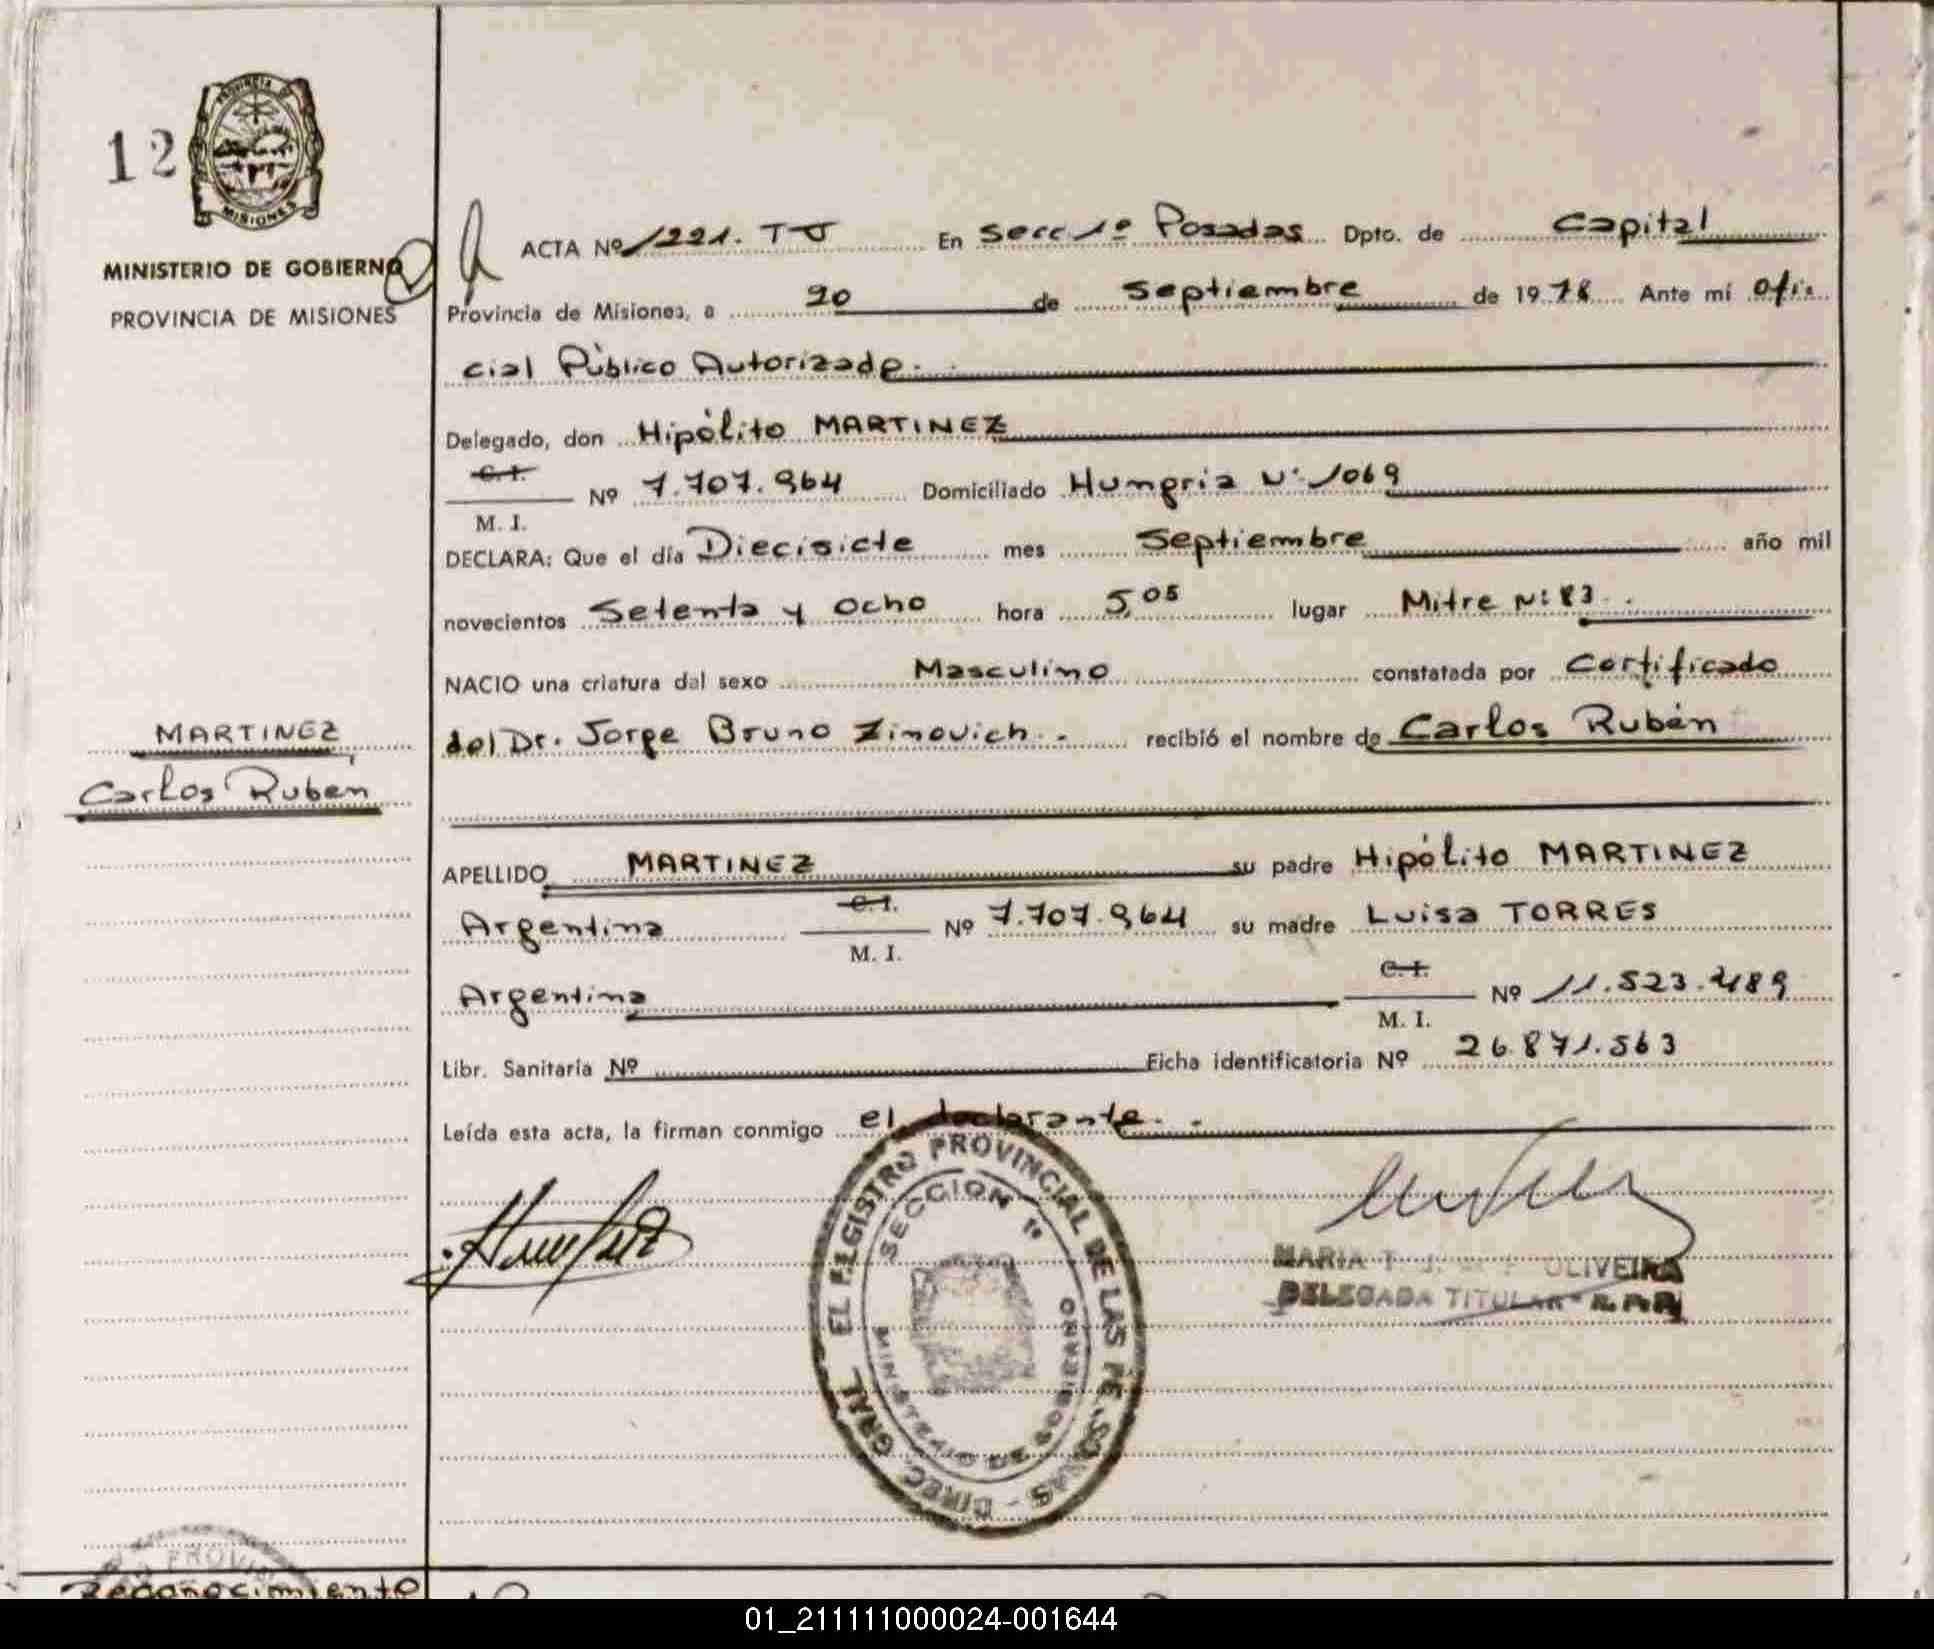 12
PROVINCIA DE
MISIONES
MINISTERIO DE GOBIERNO
PROVINCIA DE MISIONES
ACTA Nº 1221. TJ En Secc 1º Posadas Dpto. de Capital
Provincia de Misiones, a 20 de Septiembre de 1978 Ante mí Ofi-
cial Público Autorizado.
Delegado, don Hipólito MARTINEZ
C. I.
Nº 7.707.964 Domiciliado Hungria Nº 1069
M. I.
DECLARA: Que el día Diecisiete mes Septiembre año mil
novecientos Setenta y Ocho hora 5,05 lugar Mitre Nº 83.
NACIO una criatura del sexo Masculino constatada por Certificado
del Dr. Jorge Bruno Zinovich.- recibió el nombre de Carlos Rubén
MARTINEZ,
Carlos Ruben
APELLIDO MARTINEZ su padre Hipólito MARTINEZ
C. I.
Argentina Nº 7.707.964 su madre Luisa TORRES
M. I.
C. I.
Argentina Nº 11.523.489
M. I.
Libr. Sanitaria Nº Ficha identificatoria Nº 26.871.563
Leída esta acta, la firman conmigo el declarante.-
DIREC. GRAL. EL REGISTRO PROVINCIAL DE LAS PERSONAS -
SECCION 1º
MINISTERIO DE GOBIERNO
MARIA T. J. OLIVEIRA
DELEGADA TITULAR R.P.P.
PROVIN
Reconocimiento
01_211111000024-001644